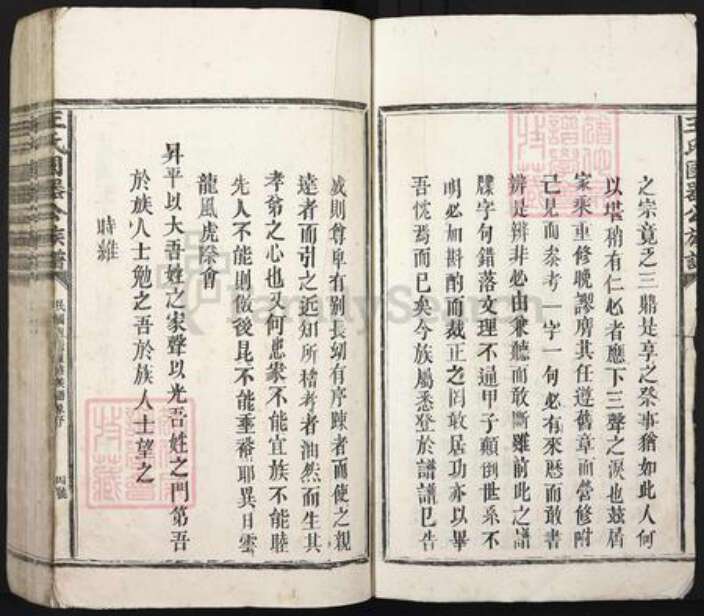 之宗竟乏三鼎是享之祭事猶如此人何
以堪稍有仁必者應下三聲之淚也茲屆
家乘重修晚謬膺其任遵舊章而營修附
己見而叅考一字一句必有來歷而敢書
辨是辨非必由衆聽而敢斷雖前此之譜
牒字句錯落文理不通甲子顛倒世系不
明必加斟酌而裁正之罔敢居功亦以畢
吾忱焉而已矣今族屬悉登於譜譜已告
成則尊卑有别長幼有序踈者而使之親
遠者而引之近知所稽考者油然而生其
孝弟之心也又何患家不能宜族不能睦
先人不能則傚後昆不能垂裕耶異日雲
龍風虎際會
昇平以大吾姓之家聲以光吾姓之門第吾
於族人士勉之吾於族人士望之
時維
王氏國器公族譜
四號
王氏國器公族譜
FamilySearch